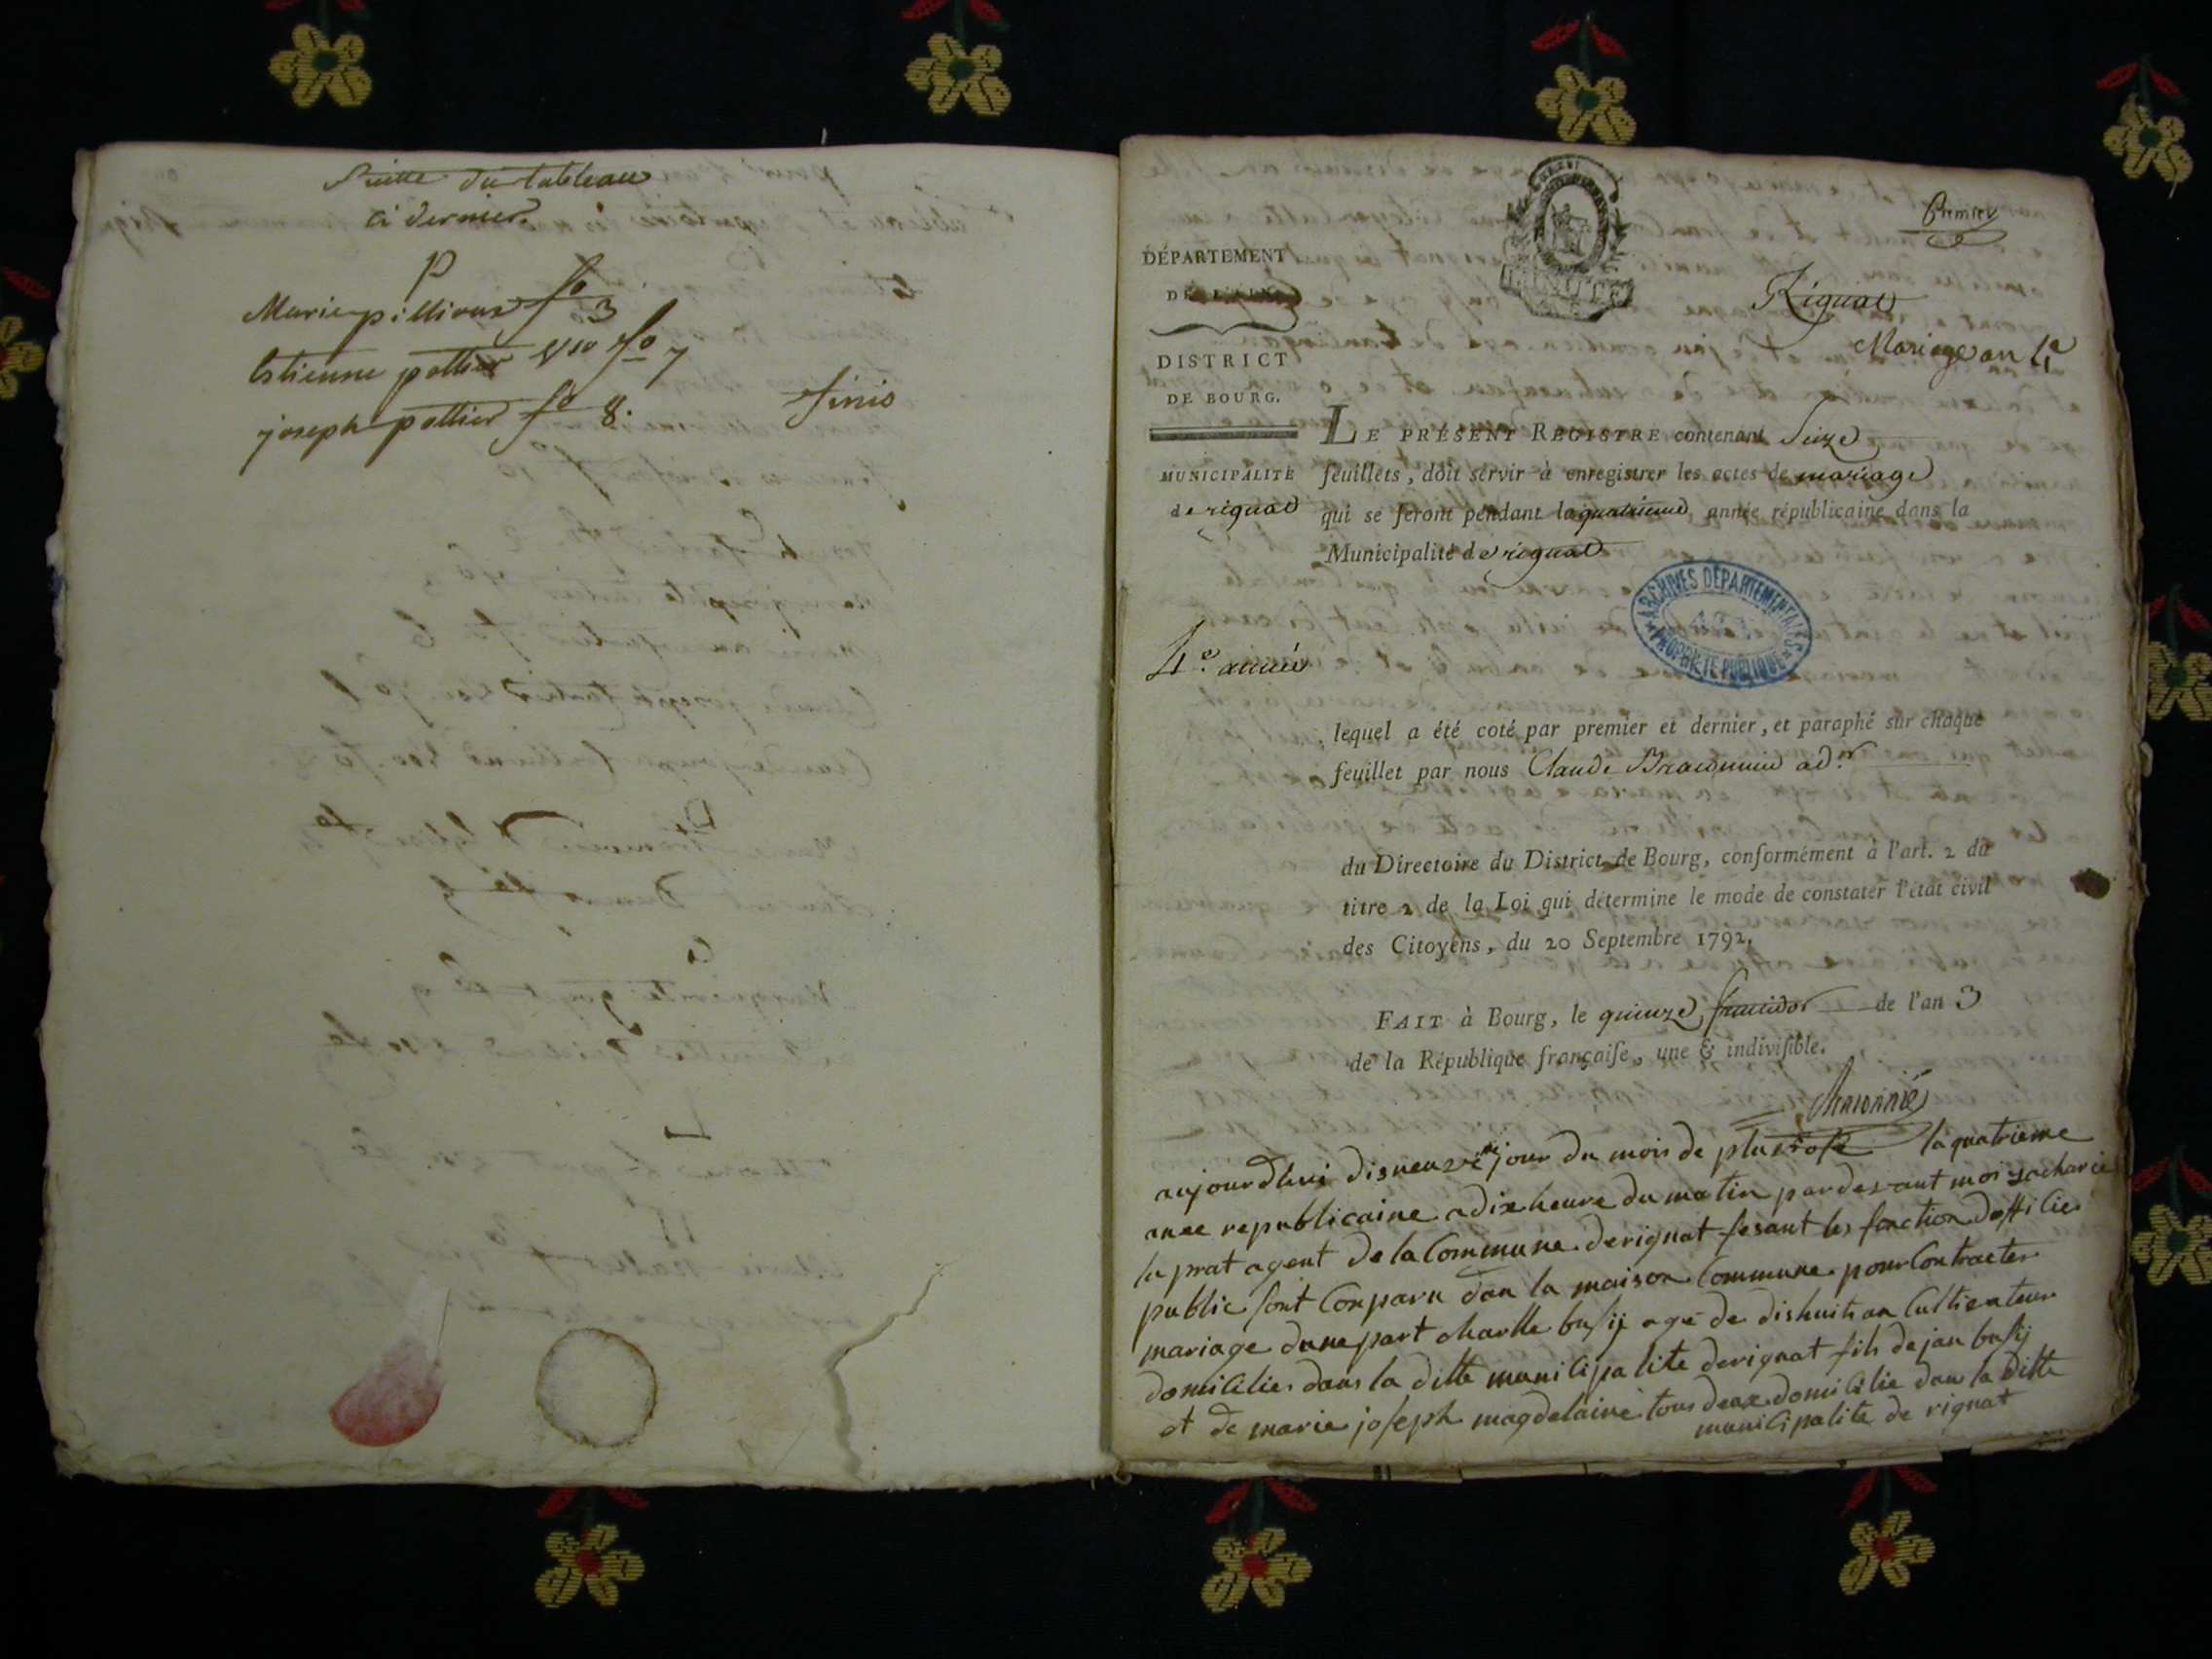 Suitte du tableau
ci dernier.
P
Marie pillivat fo 3
Estienne pottier vso fo 7
joseph pottier fo 8.
finis
Premier
DÉPARTEMENT
DE L'AIN
Rignat
Mariage an 4e
DISTRICT
DE BOURG.
LE PRÉSENT REGISTRE contenant Seize
MUNICIPALITÉ
de rignat
feuillets, doit servir à enregistrer les actes de mariage
qui se feront pendant la quatrieme année républicaine dans la
Municipalité de rignat
ARCHIVES DÉPARTEMENTALES
AIN
PROPRIÉTÉ PUBLIQUE
4e. année
lequel a été coté par premier et dernier, et paraphé sur chaque
feuillet par nous Claude adr
du Directoire du District de Bourg, conformément à l'art. 2 du
titre 2 de la Loi qui détermine le mode de constater l'état civil
des Citoyens, du 20 Septembre 1792.
FAIT à Bourg, le quinze fructidor de l'an 3
de la République françaiſe, une & indiviſible.
aujourdhui disneuvieme jour du mois de pluviose la quatrieme
anee republicaine a dix heure du matin pardevant moi zacharie
la prat agent de la Commune derignat fesant les fonction doffilie
public sont Conparu dan la maison Commune pour Contracter
mariage dune part charlle busij agé de dishuit an Cultivateur
domicilier dans la ditte municipalite derignat fils de jan busij
et de marie joseph magdelaine tous deux domicilie dans la ditte
municipalite de rignat